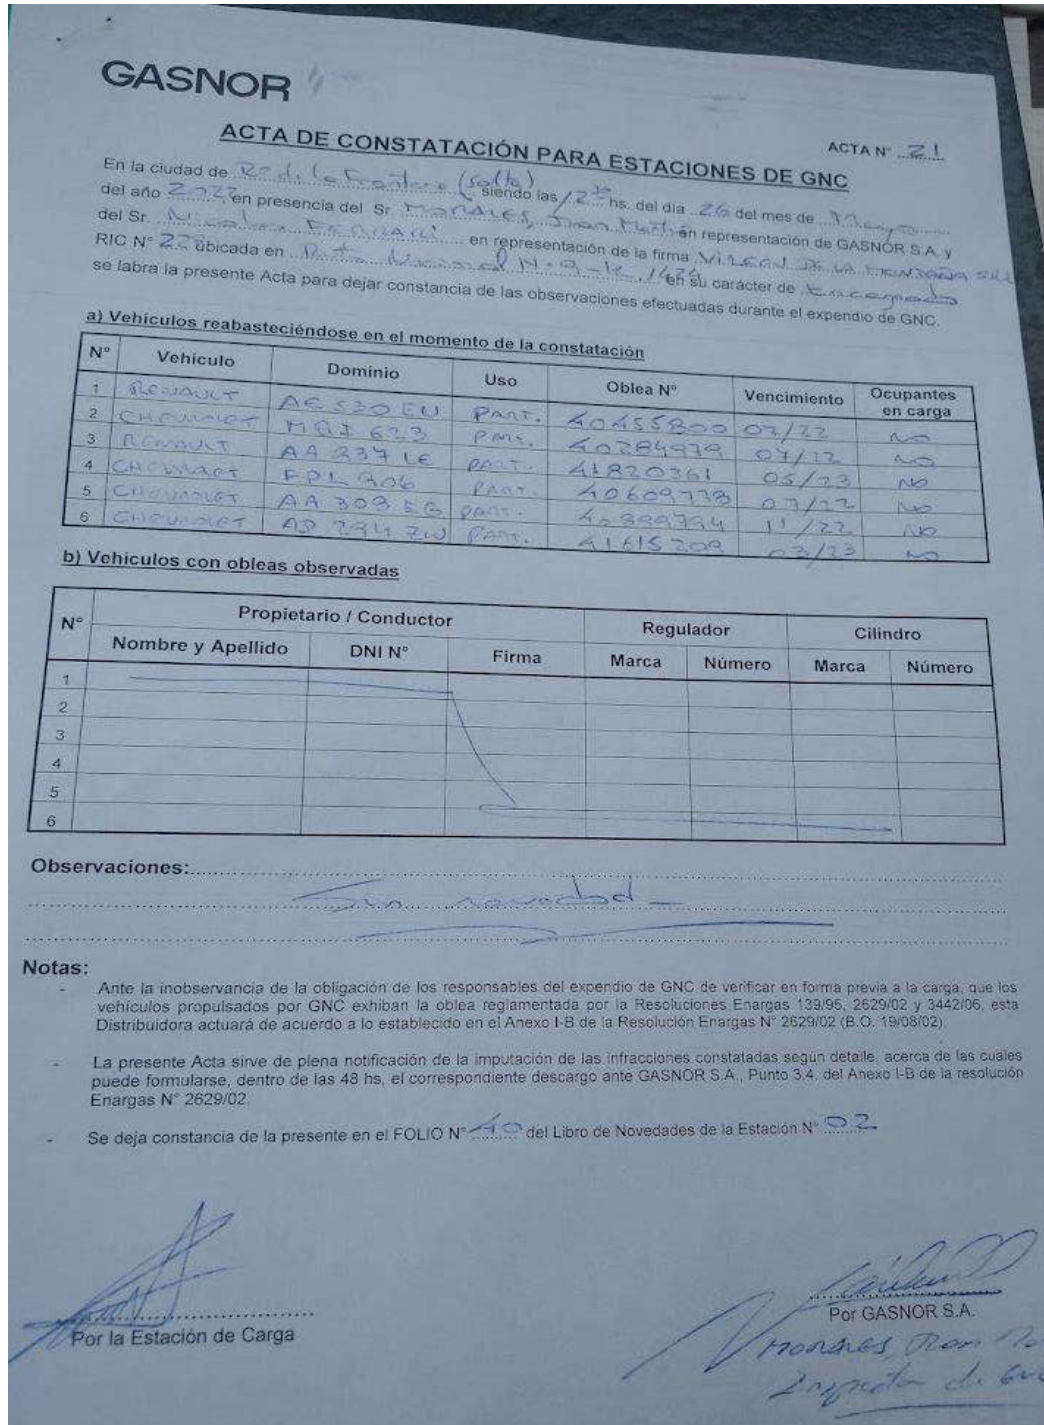 GASNOR
ACTA DE CONSTATACIÓN PARA ESTACIONES DE GNC
ACTA N° 21
En la ciudad de (Salta) siendo las 12 30 hs. del día 26 del mes de Mayo
del año 2022 en presencia del Sr. MORALES, Juan en representación de GASNOR S.A. y
del Sr. Nicolas FERRARI en representación de la firma VIRGEN DE LA MONTAÑA SRL
RIC N° ubicada en Ruta Nacional N-9 en su carácter de Encargado
se labra la presente Acta para dejar constancia de las observaciones efectuadas durante el expendio de GNC.
a) Vehículos reabasteciéndose en el momento de la constatación
N° Vehículo Dominio Uso Oblea N° Vencimiento Ocupantes en carga
1 RENAULT AE 530 EU PART. 40455800 07/22 NO
2 CHEVROLET 623 PART. 40284979 07/22 NO
3 RENAULT AA 237 LE PART. 41820361 05/23 NO
4 CHEVROLET FPL 906 PART. 40609778 07/22 NO
5 CHEVROLET AA 303 EG PART. 40899794 11/22 NO
6 CHEVROLET 294 ZW PART. 41615209 03/23 NO
b) Vehículos con obleas observadas
N° Propietario / Conductor Regulador Cilindro
Nombre y Apellido DNI N° Firma Marca Número Marca Número
1
2
3
4
5
6
Observaciones:
Sin novedad
Notas:
- Ante la inobservancia de la obligación de los responsables del expendio de GNC de verificar en forma previa a la carga, que los
vehículos propulsados por GNC exhiban la oblea reglamentada por la Resoluciones Enargas 139/95, 2629/02 y 3442/06, esta
Distribuidora actuará de acuerdo a lo establecido en el Anexo I-B de la Resolución Enargas N° 2629/02 (B.O. 19/08/02).
- La presente Acta sirve de plena notificación de la imputación de las infracciones constatadas según detalle, acerca de las cuales
puede formularse, dentro de las 48 hs, el correspondiente descargo ante GASNOR S.A., Punto 3.4. del Anexo I-B de la resolución
Enargas N° 2629/02.
- Se deja constancia de la presente en el FOLIO N° 40 del Libro de Novedades de la Estación N° 02
Por la Estación de Carga
Por GASNOR S.A.
MORALES, Juan
Inspector de